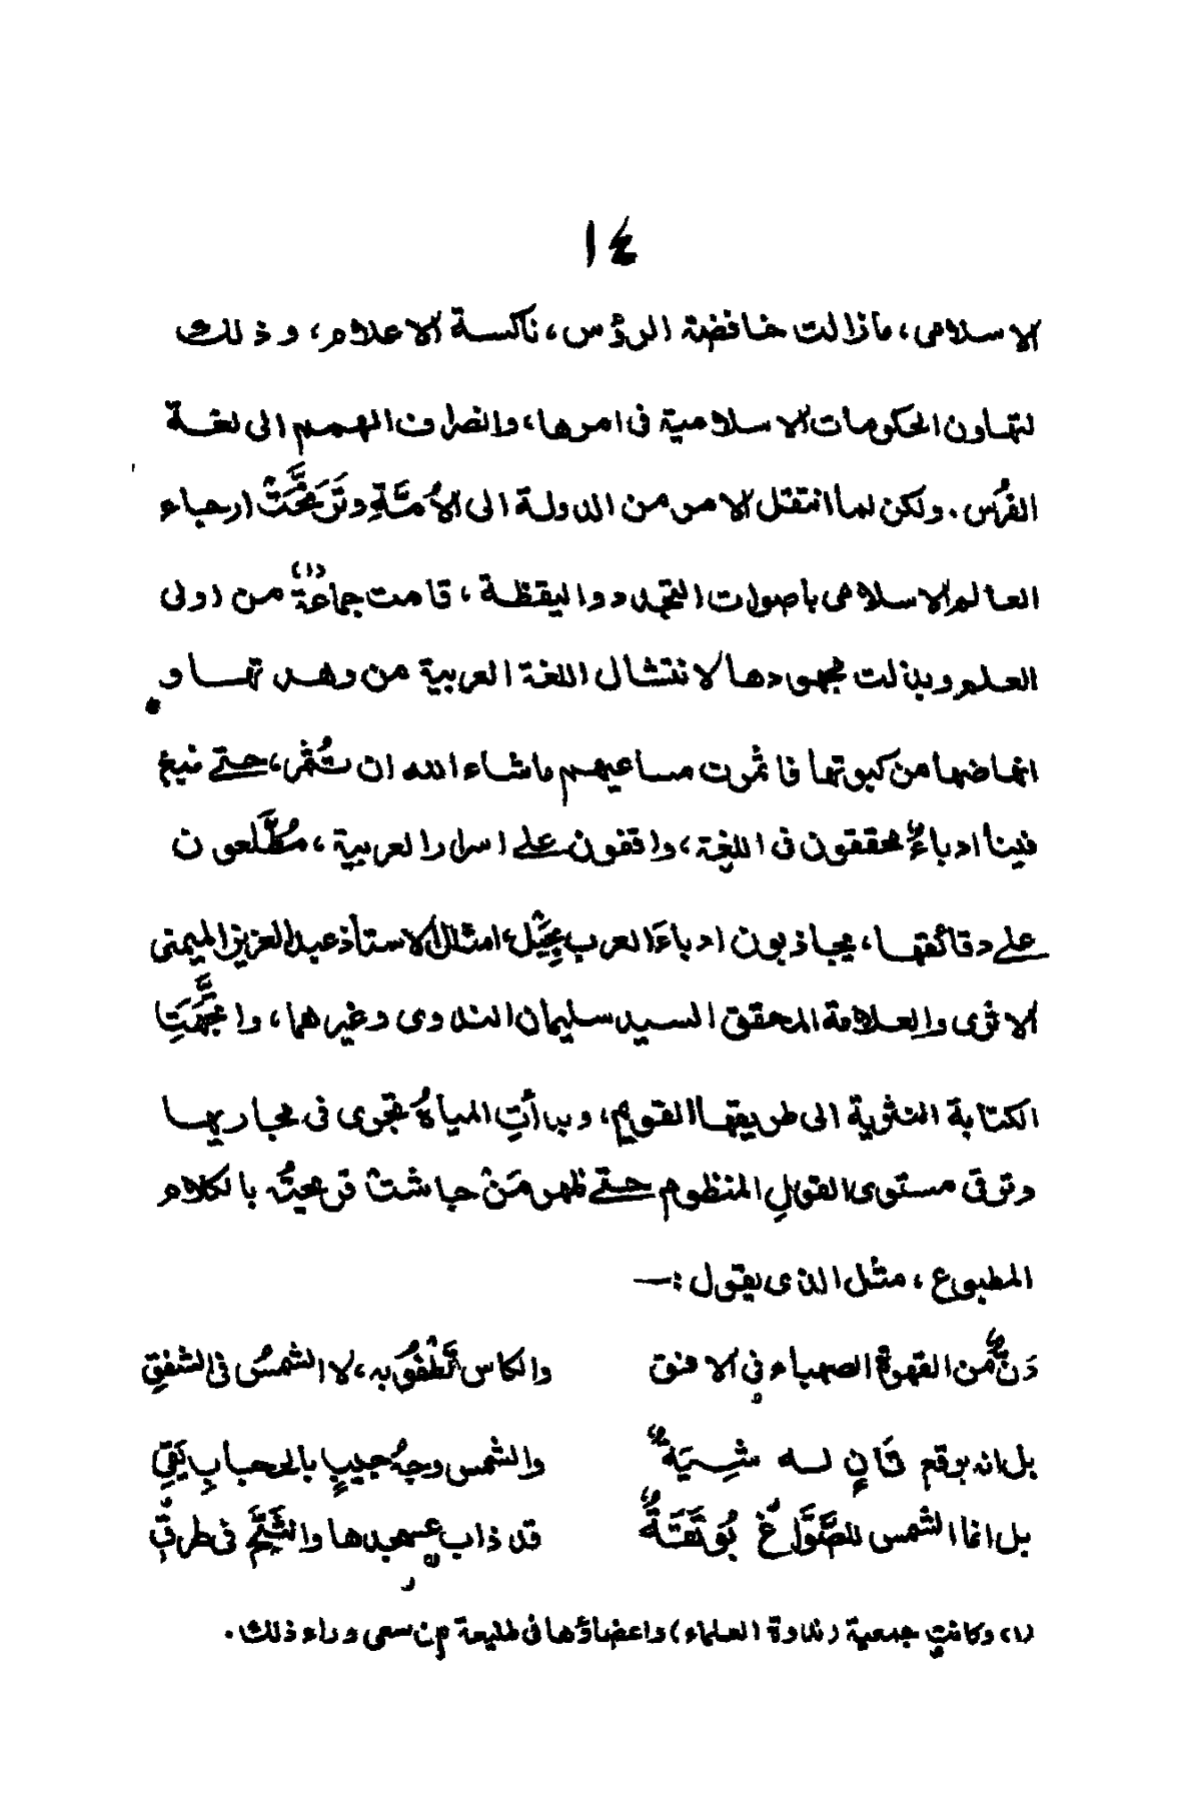 ١٤
الاسلامى، مازالت خافضة الرؤس، ناكسة الاعلام، وذلك
لتهاون الحكومات الاسلامية فى امرها، وانصراف الهمم الى لغة
الفُرس. ولكن لما انتقل الامر من الدولة الى الأُمَّةِ وتَرَنَّحَتْ ارجاء
العالم الاسلامى باصوات التجدد واليقظة، قامت جماعة(١) من اولى
العلم وبذلت مجهودها لانتشال اللغة العربية من وهدتها و
انهاضها من كبوتها فاثمرت مساعيهم ماشاء الله ان تُثمر، حتى نبغ
فينا ادباءٌ محققون فى اللغة، واقفون على اسرار العربية، مُطَّلعون
على دقائقها، يجاذبون ادباءَ العرب بِجَبْل، امثال الاستاذ عبد العزيز الميمنى
الاثرى والعلامة المحقق السيد سليمان الندوى وغيرهما، واتَّجَهَتِ
الكتابة النثرية الى طريقها القويم، وبدأتِ المياهُ تجرى فى مجاريها
وترقى مستوى القولِ المنظوم حتى ظهر مَنْ جاشتْ قريحتُه بالكلام
المطبوع، مثل الذى يقول :—
دَنٌّ من القهوة الصهباء فى الافق والكاس تَطْفُو به، لا الشمسُ فى الشفقِ
بل انه برقع قَانٍ له شِيَةٌ والشمس وجهُ حبيبٍ بالحبابِ يَقِي
بل انما الشمس للصَّوَّاغ بُوتَقَةٌ قد ذاب عسجدها والشَّيُّ فى طرقٍ
(١) وكانت جمعية (ندوة العلماء) واعضاؤها فى طليعة من سعى وراء ذلك.